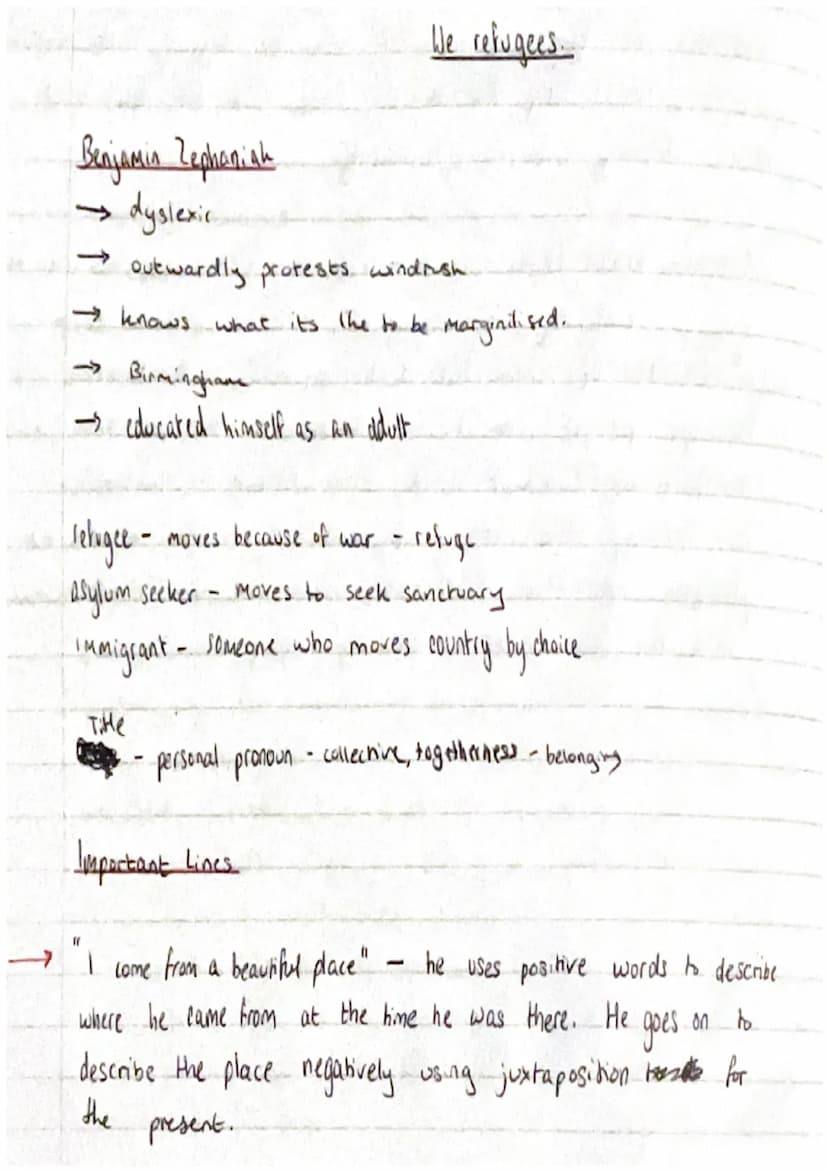 We refugees.
Benjamin Zephaniah
→ dyslexic
→ outwardly protests windrush
→ knows what its like to be marginilised.
→ Birmingham
→ educated himself as an adult
refugee - moves because of war - refuge
asylum seeker - moves to seek sanctuary
immigrant - someone who moves country by choice
Title
- personal pronoun - collective, togetherness - belonging
Important Lines
→ "I come from a beautiful place" - he uses positive words to describe
where he came from at the time he was there. He goes on to
describe the place negatively using juxtaposition for
the present.